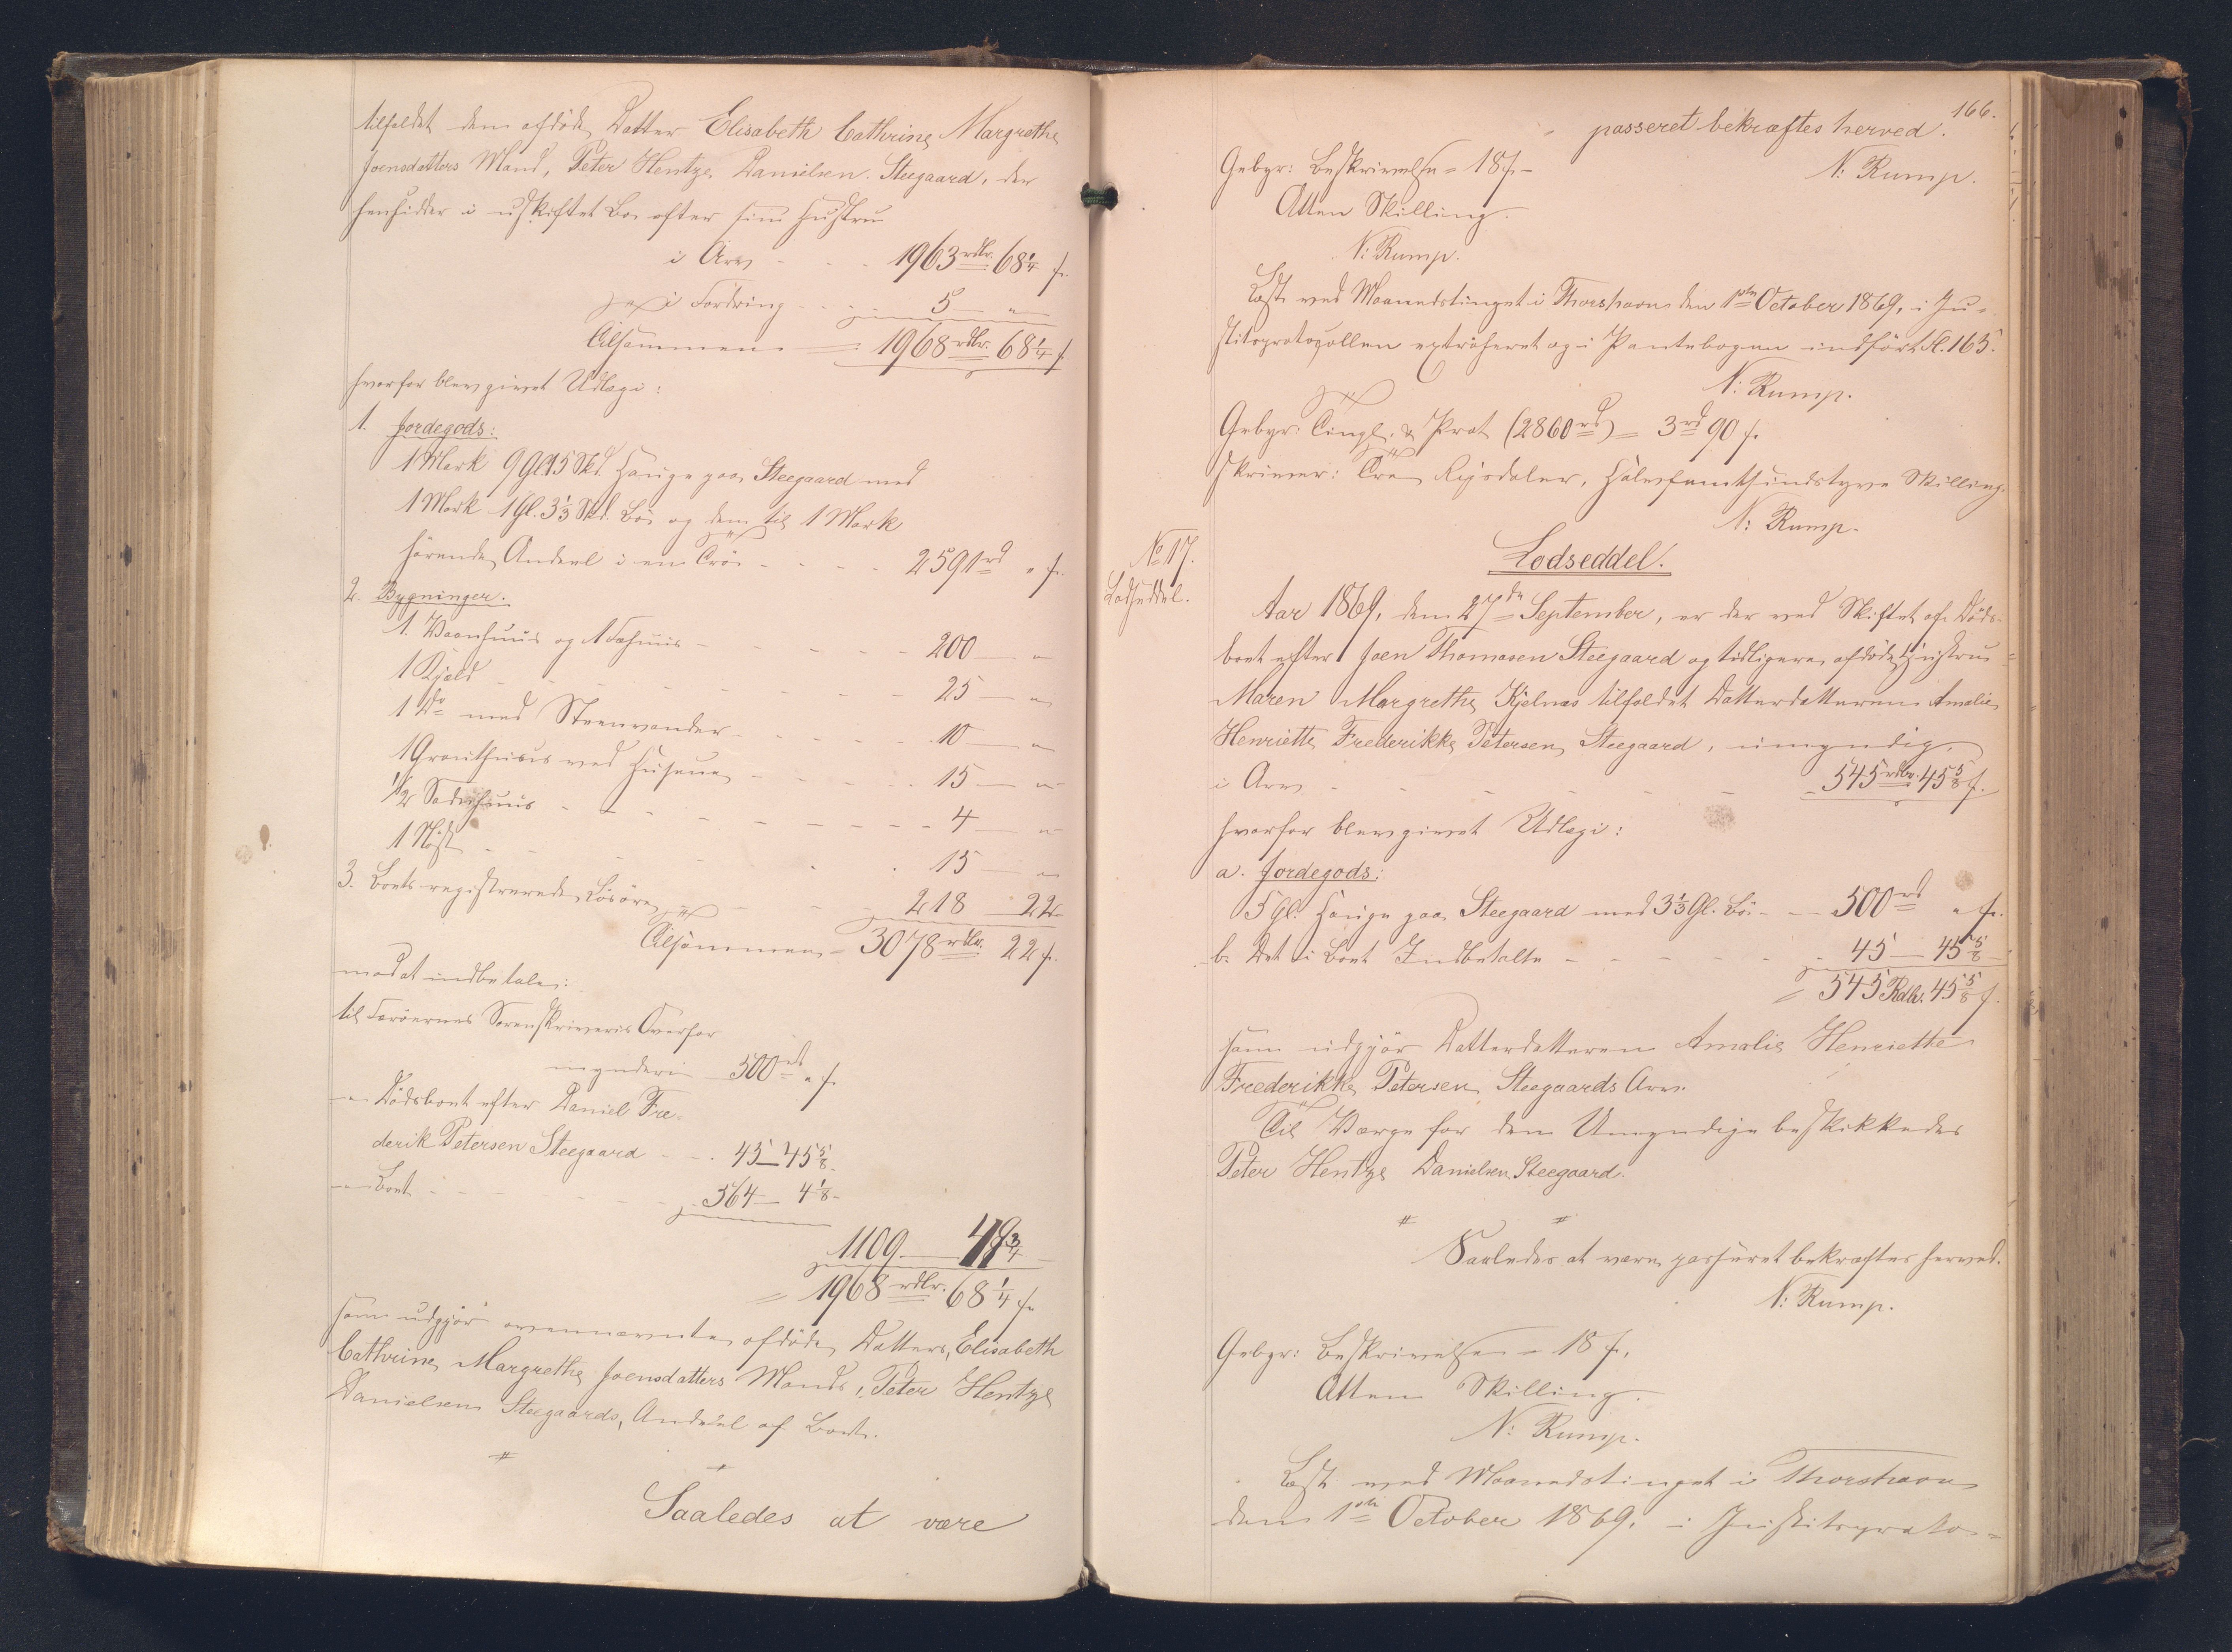 tilfaldet den afdöde Datter Elisabeth Cathrine Margrethe
Joensdatters Mand, Peter Hentze Danielsen Steegaard, der
hensidder i uskiftet Bo efter sin Hustru
i Arv - - 1963 rdlr. 68 1/4 s.
i Fordring - - 5 — "
Tilsammen = 1968 rdlr. 68 1/4 s.
hvorfor blev givet Udlæg i:
1. Jordegods:
1 Mark 9 Gl. 15 Skd. Hauge paa Steegaard med
1 Mark 1 Gl. 3 1/3 Skd. Bö og den til 1 Mark
hörende Andeel i en Trö - - - - 2591 rd " s.
2. Bygninger.
1 Vaanhuus og 1 Fæhuus - - - - - 200 — "
1 Kjeld - - - - - - - 25 — "
1 Do med Steenvender - - - - - 10 — "
1 Grouthuus ved Husene - - - - 15 — "
1/2 Sodnhuus - - - - - - - 4 — "
1 Nöst - - - - 15 — "
3. Boets registrerede Lösöre - - - 218 — 22 -
Tilsammen = 3078 rdlr. 22 s.
mod at indbetale:
til Færöernes Sorenskriveris Overfor
mynderi 500 rd " s.
— " — Dödsboet efter Daniel Fre-
derik Petersen Steegaard - - 45 — 45 5/8 -
— " — Boet - - - - - 564 — 4 1/8 -
1109 — 49 3/4 -
= 1968 rdlr. 68 1/4 s.
som udgjör ovennævnte afdöde Datters, Elisabeth
Cathrine Margrethe Joensdatters Mands, Peter Hentze
Danielsen Steegaards, Andeel af Boet.
Saaledes at være
166.
passeret bekræftes herved.
Gebyr: Beskrivelsen = 18 s. - N: Rump.
Atten Skilling.
N: Rump.
Læst ved Maanedstinget i Thorshavn den 1ste October 1869, i Ju-
stitsprotocollen extraheret og i Pantebogen indfört Fl. 165.
N: Rump.
Gebyr: Tingl. & Prot (2860 rd) = 3 rd 90 s.
skriver: Tre Rigsdaler, Halvfemtsindstyve Skilling.
N: Rump.
No 17.
Lodseddel.
Lodseddel.
Aar 1869, den 27de September, er der ved Skiftet af Döds-
boet efter Joen Thomasen Steegaard og tidligere afdöde Hustru
Maren Margrethe Kjelnæs tilfaldet Datterdatteren Amalie
Henriette Frederikke Petersen Steegaard, umyndig,
i Arv - - - - - 545 rdlr. 45 5/8 s.
hvorfor blev givet Udlæg i:
a. Jordegods:
5 Gl. Hauge paa Steegaard med 3 1/3 Gl. Bö - - 500 rd " s.
b. Det i Boet Indbetalte - - - - - 45 — 45 5/8 -
= 545 Rdlr. 45 5/8 s.
som udgjör Datterdatteren Amalie Henriette
Frederikke Petersen Steegaards Arv.
Til Værge for den Umyndige beskikkedes
Peter Hentze Danielsen Steegaard.
Saaledes at være passeret bekræftes herved.
N: Rump.
Gebyr: Beskrivelsen = 18 s.
Atten Skilling.
N: Rump.
Læst ved Maanedstinget i Thorshavn
den 1ste October 1869, i Justitsproto-